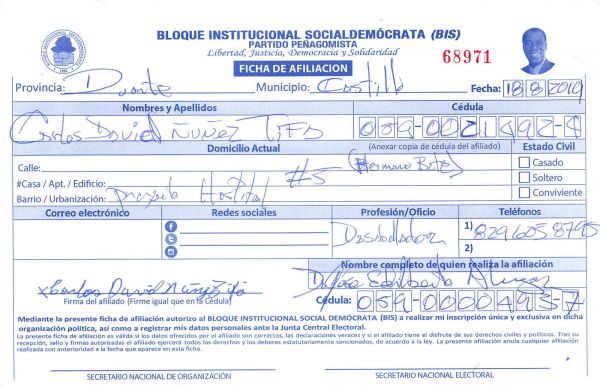 BLOQUE INSTITUCIONAL SOCIALDEMÓCRATA (BIS)
PARTIDO PEÑAGOMISTA
Libertad, Justicia, Democracia y Solidaridad
68971
FICHA DE AFILIACION
Provincia: Duarte Municipio: Castillo Fecha: 18/8/2019
Nombres y Apellidos Cédula
Carlos David Núñez Tifa 059-0021492-4
Domicilio Actual (Anexar copia de cédula del afiliado) Estado Civil
Calle: #5 (Hermano Bote) Casado
#Casa / Apt. / Edificio: Soltero
Barrio / Urbanización: Proyecto Hospital Conviviente
Correo electrónico Redes sociales Profesión/Oficio Teléfonos
Desabollador 1) 829 605 8795
2)
Nombre completo de quien realiza la afiliación
Carlos David Núñez Tifa
Firma del afiliado (Firme igual que en la Cédula) Cédula: 059-0000493-7
Mediante la presente ficha de afiliación autorizo al BLOQUE INSTITUCIONAL SOCIAL DEMÓCRATA (BIS) a realizar mi inscripción única y exclusiva en dicha
organización política, así como a registrar mis datos personales ante la Junta Central Electoral.
La presente ficha de afiliación es válida si los datos ofrecidos por el afiliado son correctos, las declaraciones veraces y si el afiliado tiene el disfrute de sus derechos civiles y políticos. Tras su
recepción, sello y firmas autorizadas el afiliado ejercerá todos los derechos y los deberes estatutariamente sancionados, de acuerdo a la ley. La presente afiliación anula cualquier afiliación
realizada con anterioridad a la fecha que aparece en esta ficha.
SECRETARIO NACIONAL DE ORGANIZACIÓN SECRETARIO NACIONAL ELECTORAL